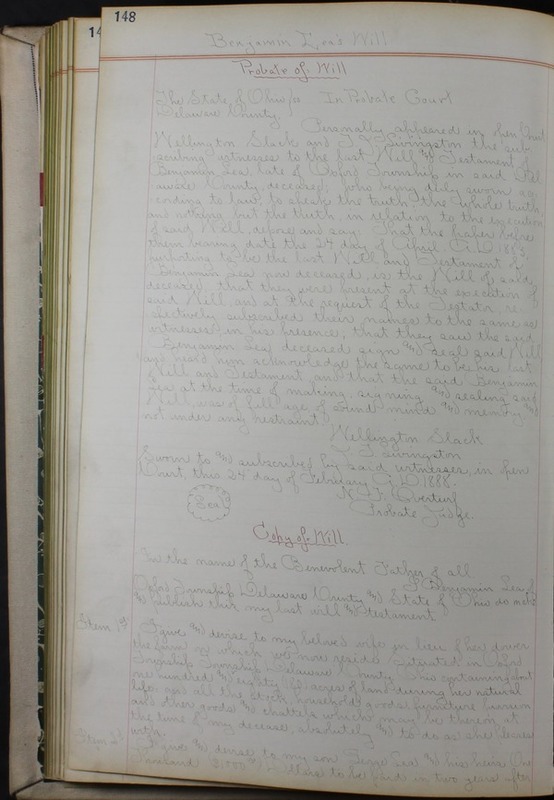 148
Benjamin Lea's Will
Probate of Will
The State of Ohio ss In Probate Court
Delaware County
Personally appeared in open Court
Wellington Slack and Livingston the sub-
scribing witnesses to the last Will and Testament of
Benjamin Lea, late of Oxford Township in said Del-
aware County, deceased, who being duly sworn ac-
cording to law, to speak the truth, the whole truth,
and nothing but the truth, in relation to the execution
of said Will, depose and say: That the paper before
them bearing date the 24 day of April A.D. 1883,
purporting to be the last Will and Testament of
Benjamin Lea now deceased, is the Will of said
deceased, that they were present at the execution of
said Will, and at the request of the Testator, re-
spectively subscribed their names to the same, as
witnesses, in his presence, that they saw the said
Benjamin Lea, deceased sign and seal said Will
and heard him acknowledge the same to be his last
Will and Testament, and that the said Benjamin
Lea at the time of making, signing and sealing said
Will, was of full age of sound mind and memory and
not under any restraint.
Wellington Slack
Livingston
Sworn to and subscribed by said witnesses, in open
Court, this 24 day of February A.D. 1888.
Overturf
Probate Judge.
Seal
Copy of Will
In the name of the Benevolent Father of all
I Benjamin Lea of
Oxford Township Delaware County and State of Ohio do make
and publish this, my last will and testament.
Item 1st I give and devise to my beloved wife in lieu of her dower
the farm on which we now reside situated in Oxford
Township Delaware County Ohio containing about
one hundred and eighty acres of land during her natural
life and all the stock, household goods, furniture
and other goods and chattels which may be thereon at
the time of my decease, absolutely and to do as she pleases
with.
Item 2d I give and devise to my son George Lea and his heirs One
to be paid in two years after